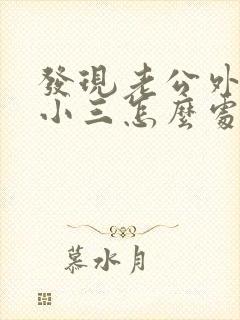 發現老公外
小三怎麼處
慕水月